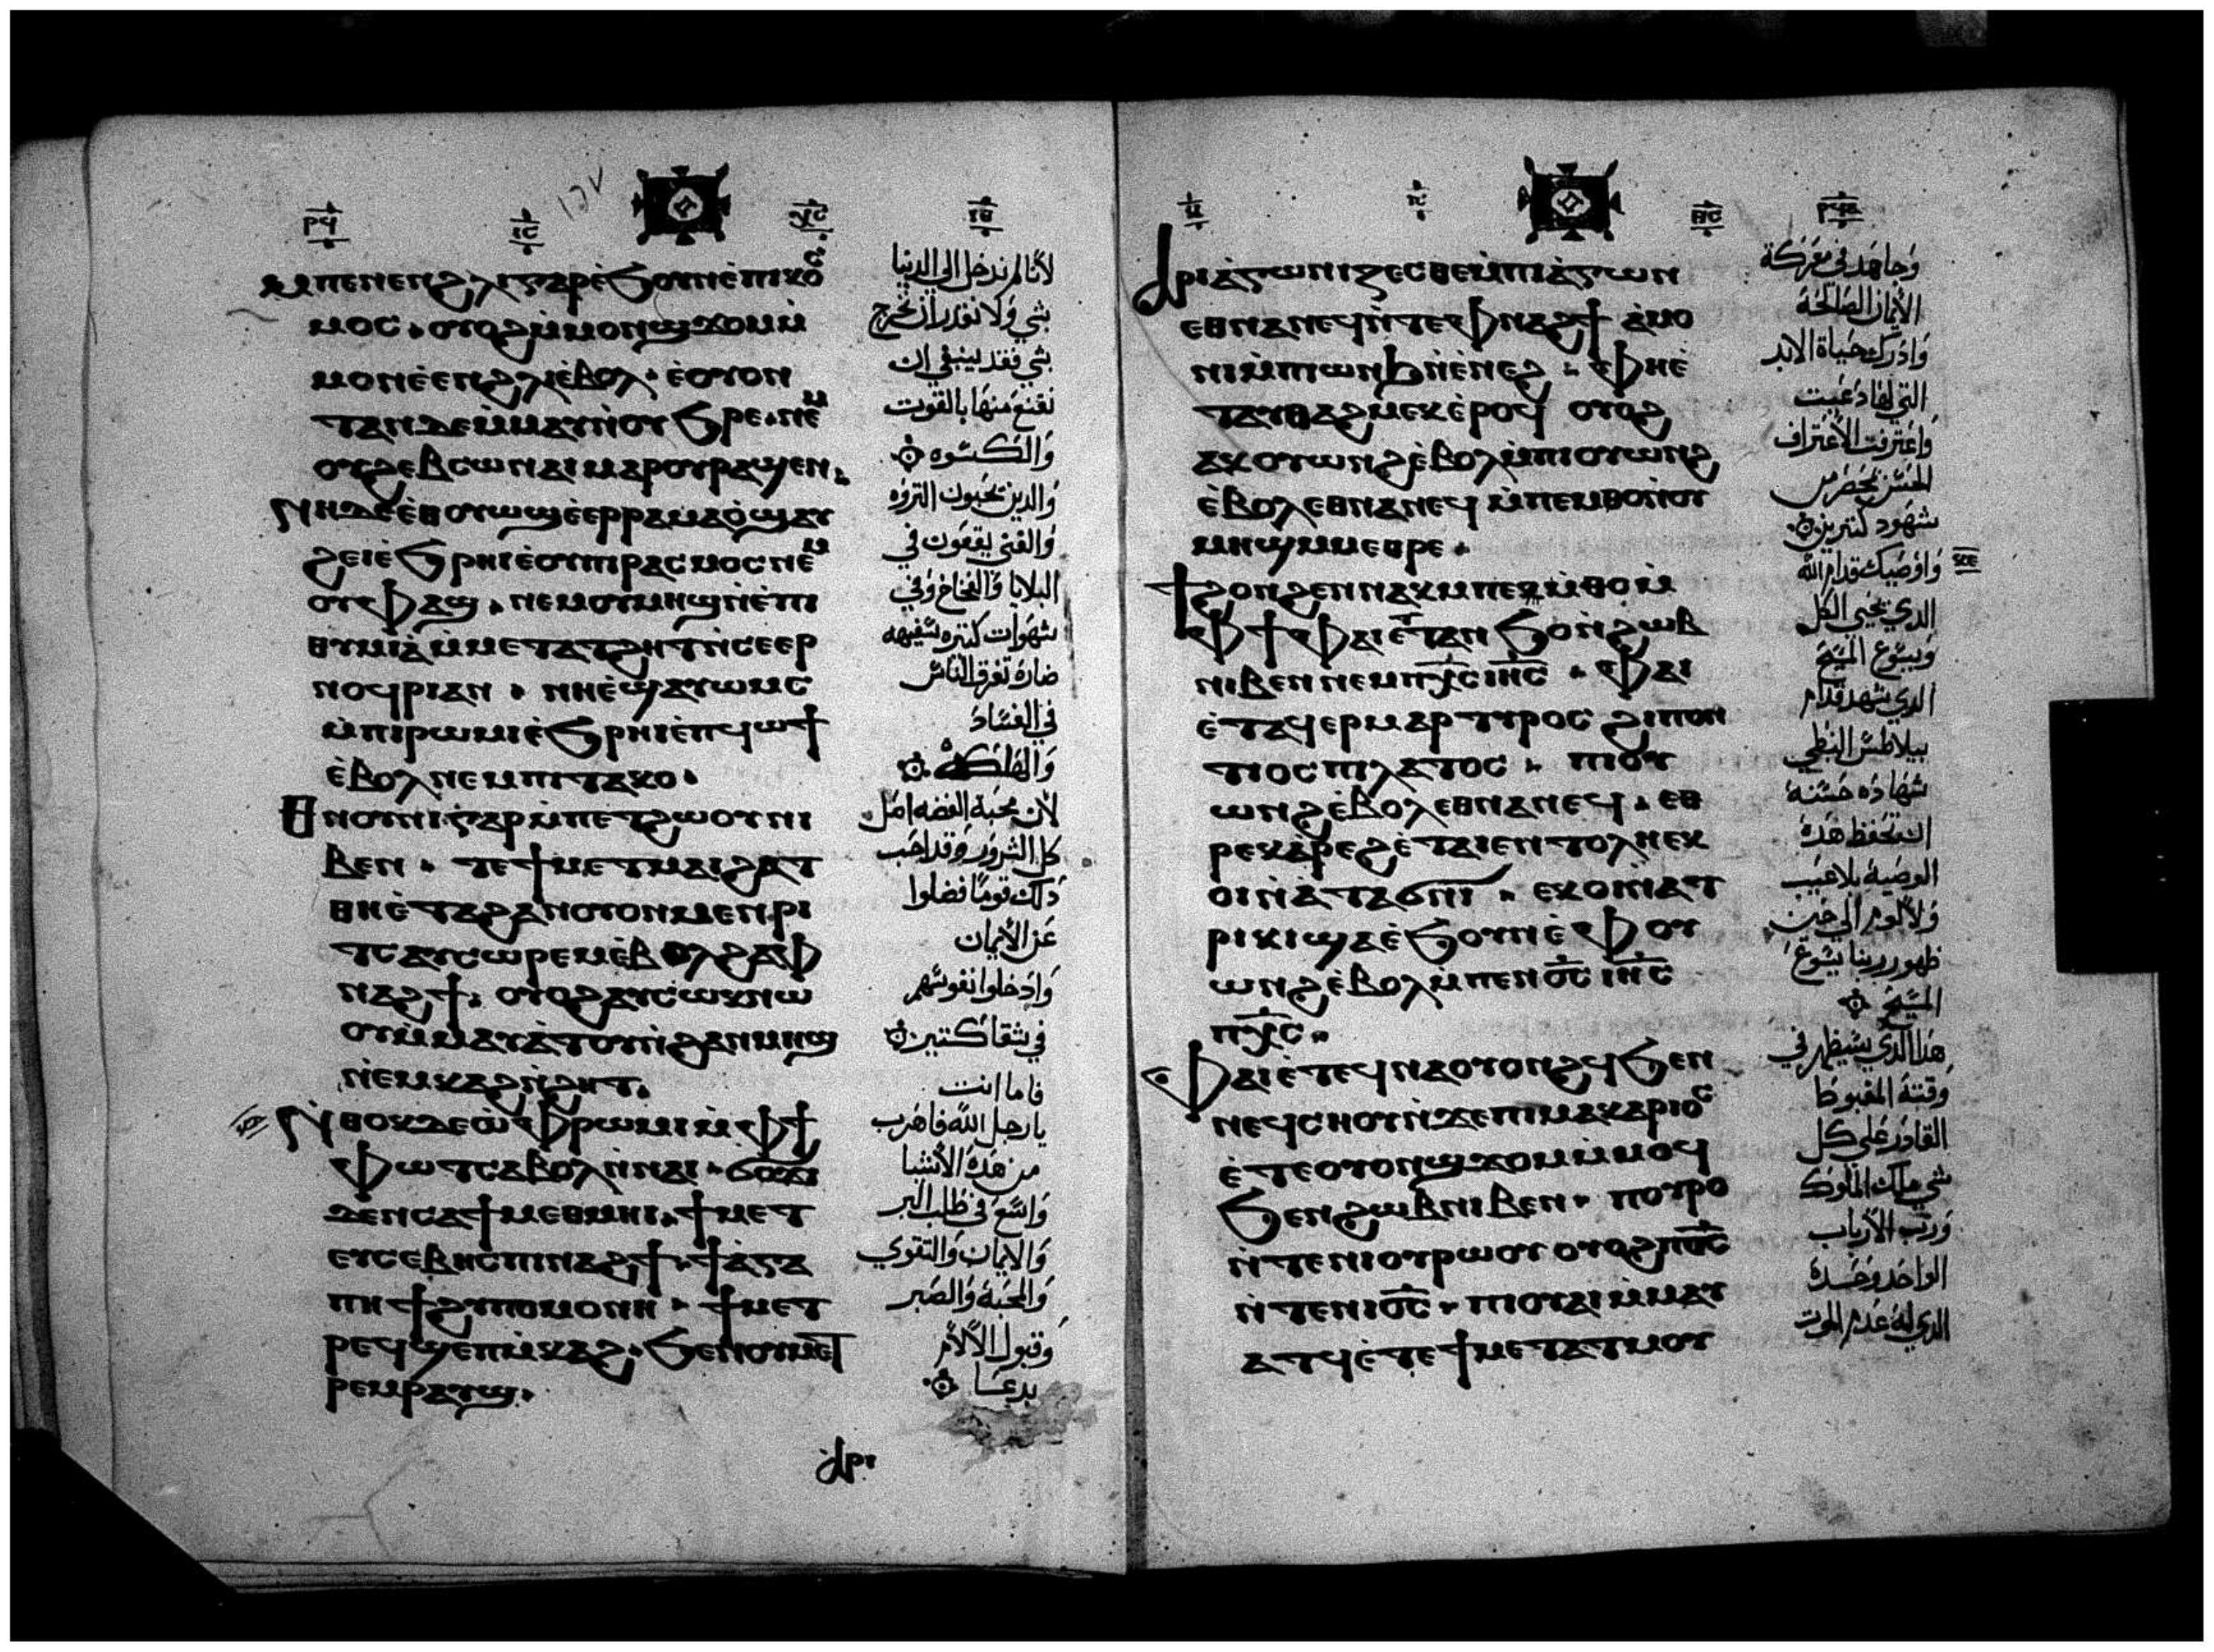 ⲣϥ ⲓⲥ ⲭⲥ ⲓⲑ
ⲙⲡⲉⲛⲉⲛϩⲗⲓⲅⲁⲣⲉ̀ϧⲟⲩⲛⲉ̀ⲡⲓⲕⲟⲥ
ⲙⲟⲥ ⲟⲩⲟϩⲙ̀ⲙⲟⲛϣϫⲟⲙⲙ̀
ⲙⲟⲛⲉ̀ⲉⲛϩⲗⲓⲉ̀ⲃⲟⲗ ⲉ̀ⲟⲩⲟⲛ
ⲧⲁⲛⲇⲉⲙ̀ⲙⲁⲩⲛ̀ⲟⲩϧⲣⲉ ⲛⲉⲙ
ⲟⲩϩⲉⲃⲥⲱⲛⲁⲓⲙⲁⲣⲟⲩⲣⲁϣⲉⲛ
ⲛⲏⲇⲉⲉ̀ⲑⲟⲩⲱϣⲉ̀ⲉⲣⲣⲁⲙⲁⲟ̀ϣⲁⲩ
ϩⲉⲓⲉ̀ϧⲣⲏⲓⲉ̀ⲟⲩⲡⲓⲣⲁⲥⲙⲟⲥⲛⲉⲙ
ⲟⲩⲫⲁϣ ⲛⲉⲙⲟⲩⲙⲏϣⲛ̀ⲉ̀ⲡⲓ
ⲑⲩⲙⲓⲁ̀ⲙ̀ⲙⲉⲧⲁⲧϩⲏⲧⲛ̀ⲥⲉⲉⲣ
ⲛⲟϥⲣⲓⲁⲛ ⲛⲏⲉ̀ϣⲁⲩⲱⲙⲥ
ⲙ̀ⲡⲓⲣⲱⲙⲓⲉ̀ϧⲣⲏⲓⲉ̀ⲡϥⲱϯ
ⲉ̀ⲃⲟⲗⲛⲉⲙⲡⲓⲧⲁⲕⲟ
ⲑⲛⲟⲩⲛⲓⲅⲁⲣⲙ̀ⲡⲉⲧϩⲱⲟⲩⲛⲓ
ⲃⲉⲛ ⲧⲉϯⲙⲉⲧⲙⲁⲓϩⲁⲧ
ⲑⲏⲉ̀ⲧⲁϩⲁⲛⲟⲩⲟⲛⲙⲉⲛⲣⲓ
ⲧⲥⲁⲩⲥⲱⲣⲉⲙⲉ̀ⲃⲟⲗϩⲁⲫ
ⲛⲁϩϯ ⲟⲩⲟϩⲁⲩⲥⲱⲕⲛⲱ
ⲟⲩⲙ̀ⲙⲁⲩⲁ̀ⲧⲟⲩⲛ̀ϩⲁⲛⲙⲏϣ
ⲛ̀ⲉⲙⲕⲁϩⲛ̀ϩⲏⲧ
ⲛ̀ⲑⲟⲕⲇⲉⲱ̀ⲫⲣⲱⲙⲓⲙ̀ⲫϯ
ⲫⲱⲧⲥⲁⲃⲟⲗⲛ̀ⲛⲁⲓ ϭⲟϫⲓ
ⲇⲉⲛⲥⲁϯⲙⲉⲑⲙⲏⲓ ϯⲙⲉⲧ
ⲉⲩⲥⲉⲃⲏⲥⲡⲓⲛⲁϩϯ ϯⲁ̀ⲅⲁ
ⲡⲏϯϩⲩⲡⲟⲙⲟⲛⲏ ϯⲙⲉⲧ
ⲣⲉϥϣⲉⲡⲙ̀ⲕⲁϩ ϧⲉⲛⲟⲩⲙⲉⲧ
ⲣⲉⲙⲣⲁⲩϣ
لأنا لم ندخل الي الدنيا
بشي ولا نقدر ان نخرج
بشي فقد ينبغي ان
نقنع منها بالقوت
والكسوه
والدين يحبون التروه
والغني يقعون في
البلايا والفخاخ وفي
شهوات كتيره سفيهه
ضاره تغرق الناس
في الفساد
والهلكه
لأن محبة الفضه اصل
كل الشرور وقد احب
دلك قوما فضلوا
عن الأيمان
وادخلوا نفوسهم
في شقا كتير
فاما انت
يا رجل الله فاهرب
من هده الأشيا
واسع في طلب البر
والايمان والتقوي
والمحبة والصبر
وقبول الآلام
بدعا
ⲁⲣⲓ
ⲓⲥ ⲣϥⲁ
ⲁⲣⲓⲁ̀ⲅⲱⲛⲓⲍⲉⲥⲑⲉⲙ̀ⲡⲓⲁ̀ⲅⲱⲛ
ⲉⲑⲛⲁⲛⲉϥⲛ̀ⲧⲉⲫⲛⲁϩϯ ⲁ̀ⲙⲟ
ⲛⲓⲙ̀ⲡⲱⲛϧⲛ̀ⲉ̀ⲛⲉϩ ⲫⲏⲉ̀
ⲧⲁⲩⲑⲁϩⲙⲉⲕⲉ̀ⲣⲟϥ ⲟⲩⲟϩ
ⲁⲕⲟⲩⲱⲛϩⲉ̀ⲃⲟⲗⲙ̀ⲡⲓⲟⲩⲱⲛϩ
ⲉ̀ⲃⲟⲗⲉⲑⲛⲁⲛⲉϥ ⲙ̀ⲡⲉⲙⲑⲟⲛ̀ⲟⲩ
ⲙⲏϣⲙⲙⲉⲑⲣⲉ
ϯϩⲟⲛϩⲉⲛⲛⲁⲕⲙⲡⲉⲙ̀ⲑⲟⲙ̀
ⲫϯⲫⲁⲓⲉ̀ⲧⲧⲁⲛϧⲟⲛ̀ϩⲱⲃ
ⲛⲓⲃⲉⲛⲛⲉⲙⲡⲭⲥⲓⲏⲥ ⲫⲁⲓ
ⲉ̀ⲧⲁϥⲉⲣⲙⲁⲣⲧⲩⲣⲟⲥ ϩⲓⲡⲟⲛ
ⲧⲓⲟⲥⲡⲓⲗⲁⲧⲟⲥ ⲡⲓⲟⲩ
ⲱⲛϩⲉ̀ⲃⲟⲗⲉⲑⲛⲁⲛⲉϥ ⲉⲑ
ⲣⲉⲕⲁ̀ⲣⲉϩⲉ̀ⲧⲁⲓⲉⲛⲧⲟⲗⲏⲉⲕ
ⲟⲓⲛ̀ⲁ̀ⲧⲁϭⲛⲓ ⲉⲕⲟⲓⲛ̀ⲁⲧ
ⲣⲓⲕⲓϣⲁⲉ̀ϧⲟⲩⲛⲉ̀ⲫⲟⲩ
ⲱⲛϩⲉ̀ⲃⲟⲗⲙⲡⲉⲛⲟ̅ⲥ̅ ⲓⲏⲥ
ⲡⲭⲥ
ⲫⲁⲓⲉ̀ⲧⲉϥⲛⲁⲟⲩⲟⲛϩϥϧⲉⲛ
ⲛⲉϥⲥⲏⲟⲩⲛ̀ϫⲉⲡⲓⲙⲁⲕⲁⲣⲓⲟⲥ
ⲉ̀ⲧⲉⲟⲩⲟⲛϣϫⲟⲙⲙ̀ⲙⲟϥ
ϧⲉⲛϩⲱⲃⲛⲓⲃⲉⲛ ⲡⲟⲩⲣⲟ
ⲛ̀ⲧⲉⲛⲓⲟⲩⲣⲱⲟⲩⲟⲩⲟϩⲡⲟ̅ⲥ̅
ⲛ̀ⲧⲉⲛⲓⲟ̅ⲥ̅ ⲡⲓⲟⲩⲁⲓⲙ̀ⲙⲁⲩ
ⲁⲧϥⲉ̀ⲧⲉϯⲙⲉⲧⲁⲧⲙⲟⲩ
وجاهد في معركة
الأيمان الصالحة
وادرك حياة الابد
التي لها دعيت
واعترفت الأعتراف
الحسن بمحضر من
شهود كتيرين
واوصيك قدام الله
الدي يحيي الكل
ويسوع المسيح
الدي شهد قدام
بيلاطس النبطي
شهاده حسنة
ان تحفظ هده
الوصية بلا عيب
ولا لوم الي حين
ظهور ربنا يسوع
المسيح
هدا الدي سيظهر في
وقته المغبوط
القادر علي كل
شي ملك الملوك
ورب الأرباب
الواحد وحده
الدي له عدم الموت